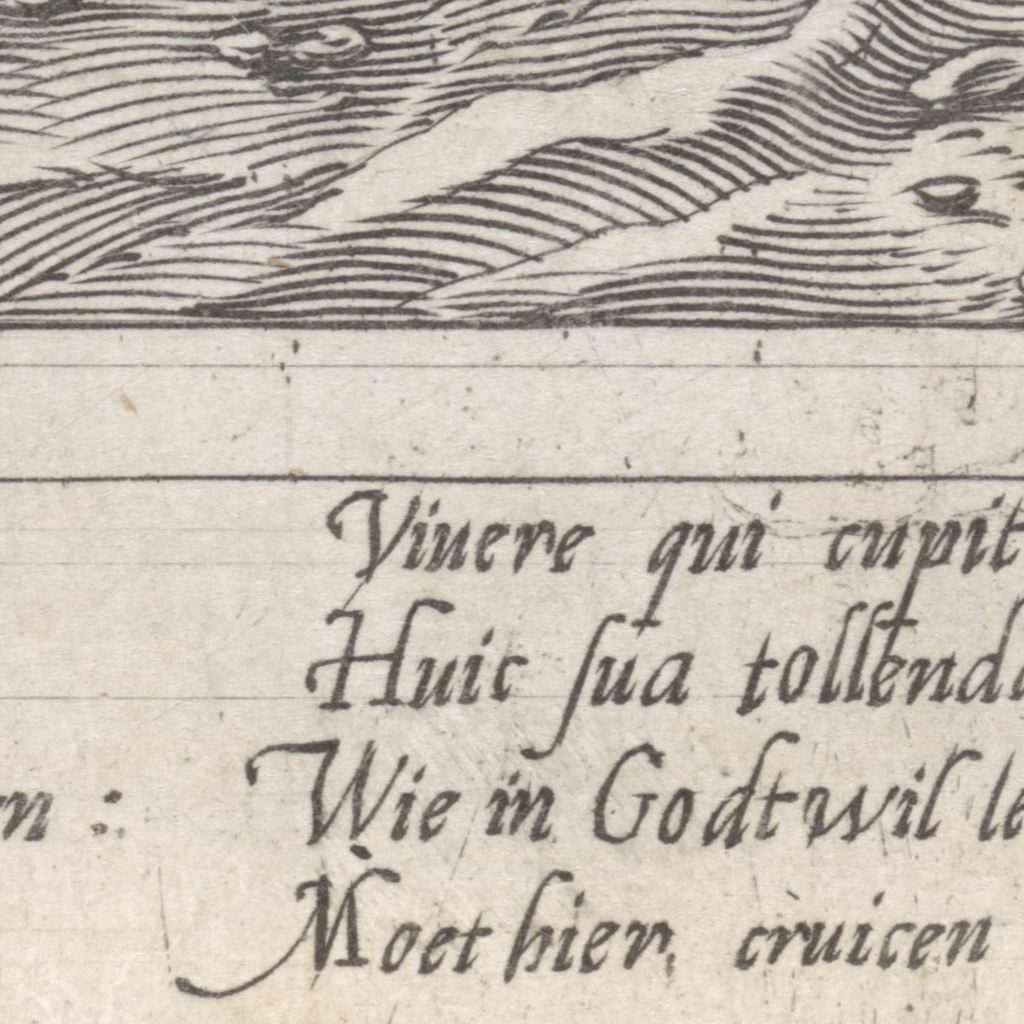 Viuere qui cupit
Huic ſua tollenda
n : Wie in Godt wil le
Moet hier cruicen